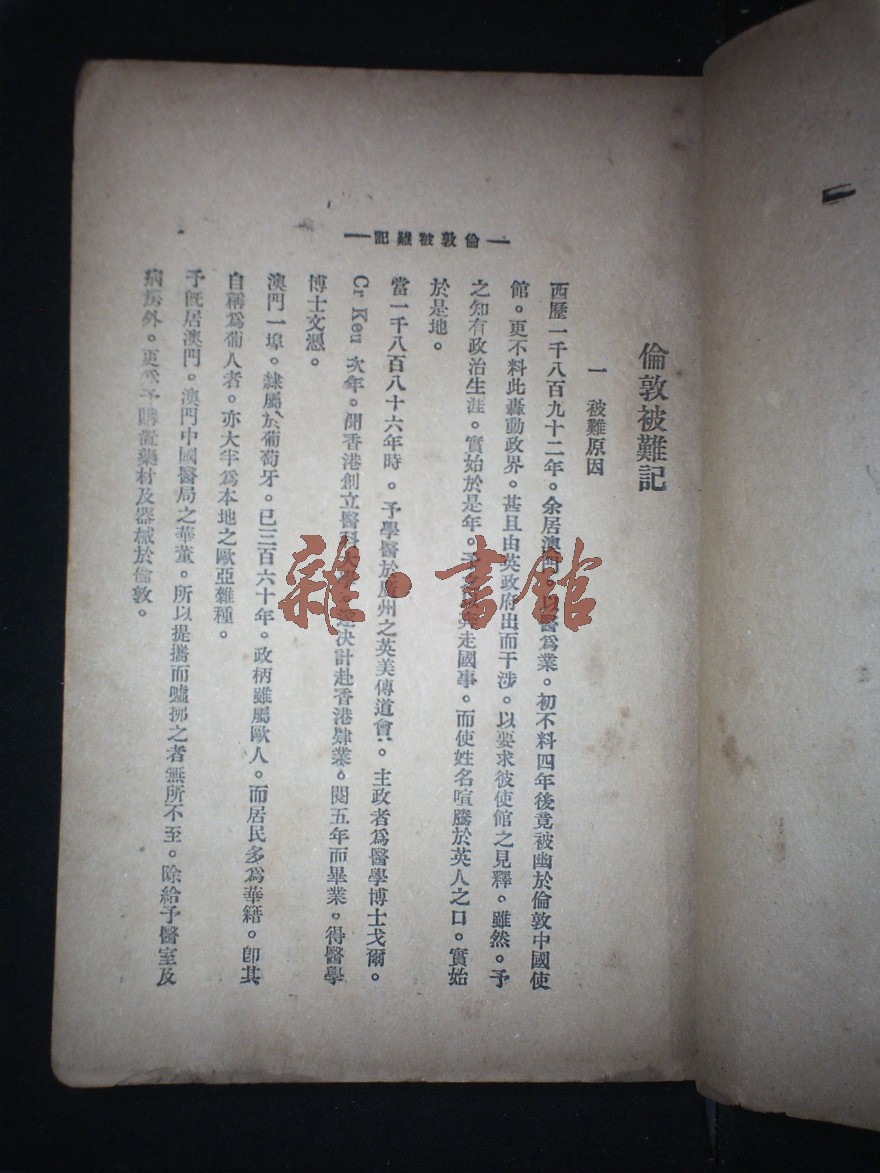 倫敦被難記
倫敦被難記
一 被難原因
西歷一千八百九十二年。余居澳門。以醫爲業。初不料四年後竟被幽於倫敦中國使
館。更不料此轟動政界。甚且由英政府出而干涉。以要求彼使館之見釋。雖然。予
之知有政治生涯。實始於是年。予 走國事。而使姓名喧騰於英人之口。實始
於是地。
當一千八百八十六年時。予學醫於廣州之英美傳道會。主政者爲醫學博士戈爾。
Cr Keu 次年。聞香港創立醫科 決計赴香港肄業。閱五年而畢業。得醫學
博士文憑。
澳門一埠。隸屬於葡萄牙。已三百六十年。政柄雖屬歐人。而居民多爲華籍。卽其
自稱爲葡人者。亦大半爲本地之歐亞雜種。
予旣居澳門。澳門中國醫局之華董。所以提攜而噓拂之者無所不至。除給予醫室及
病房外。更爲予購置藥材及器械於倫敦。
雜·書館